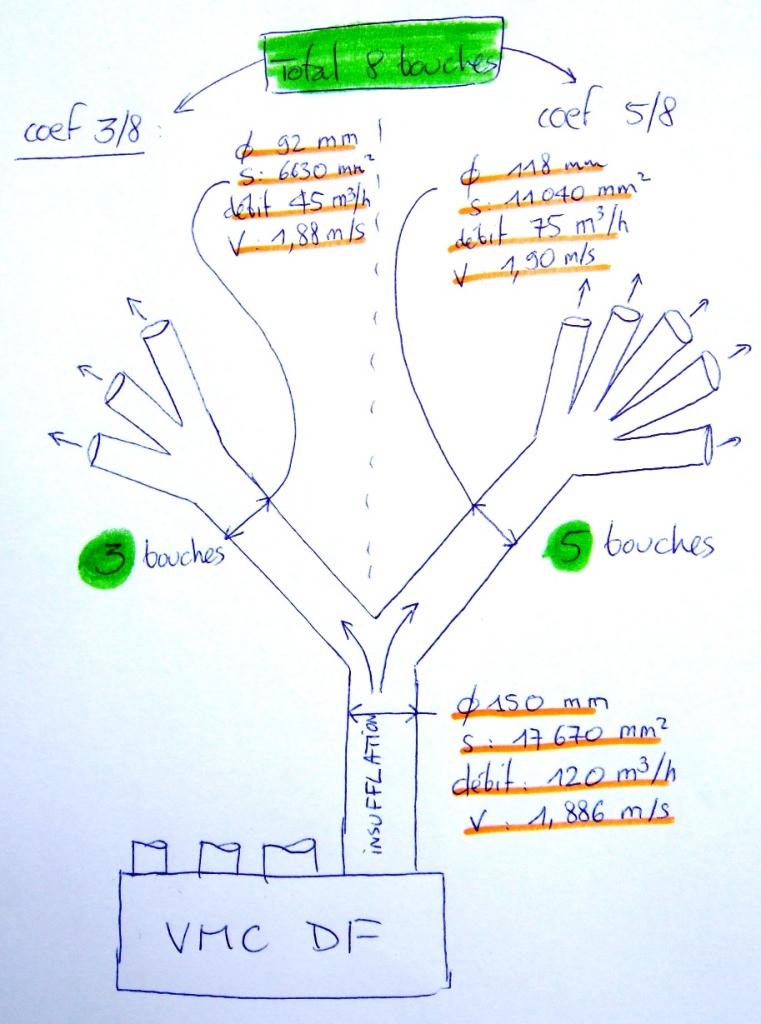 Total 8 bouches
coef 3/8 :
coef 5/8
ϕ 92 mm
S: 6630 mm²
débit 45 m³/h
V : 1,88 m/s
ϕ 118 mm
S: 11040 mm²
débit 75 m³/h
V : 1,90 m/s
3 bouches
5 bouches
ϕ 150 mm
S: 17670 mm²
débit: 120 m³/h
V : 1,886 m/s
INSUFFLATION
VMC DF